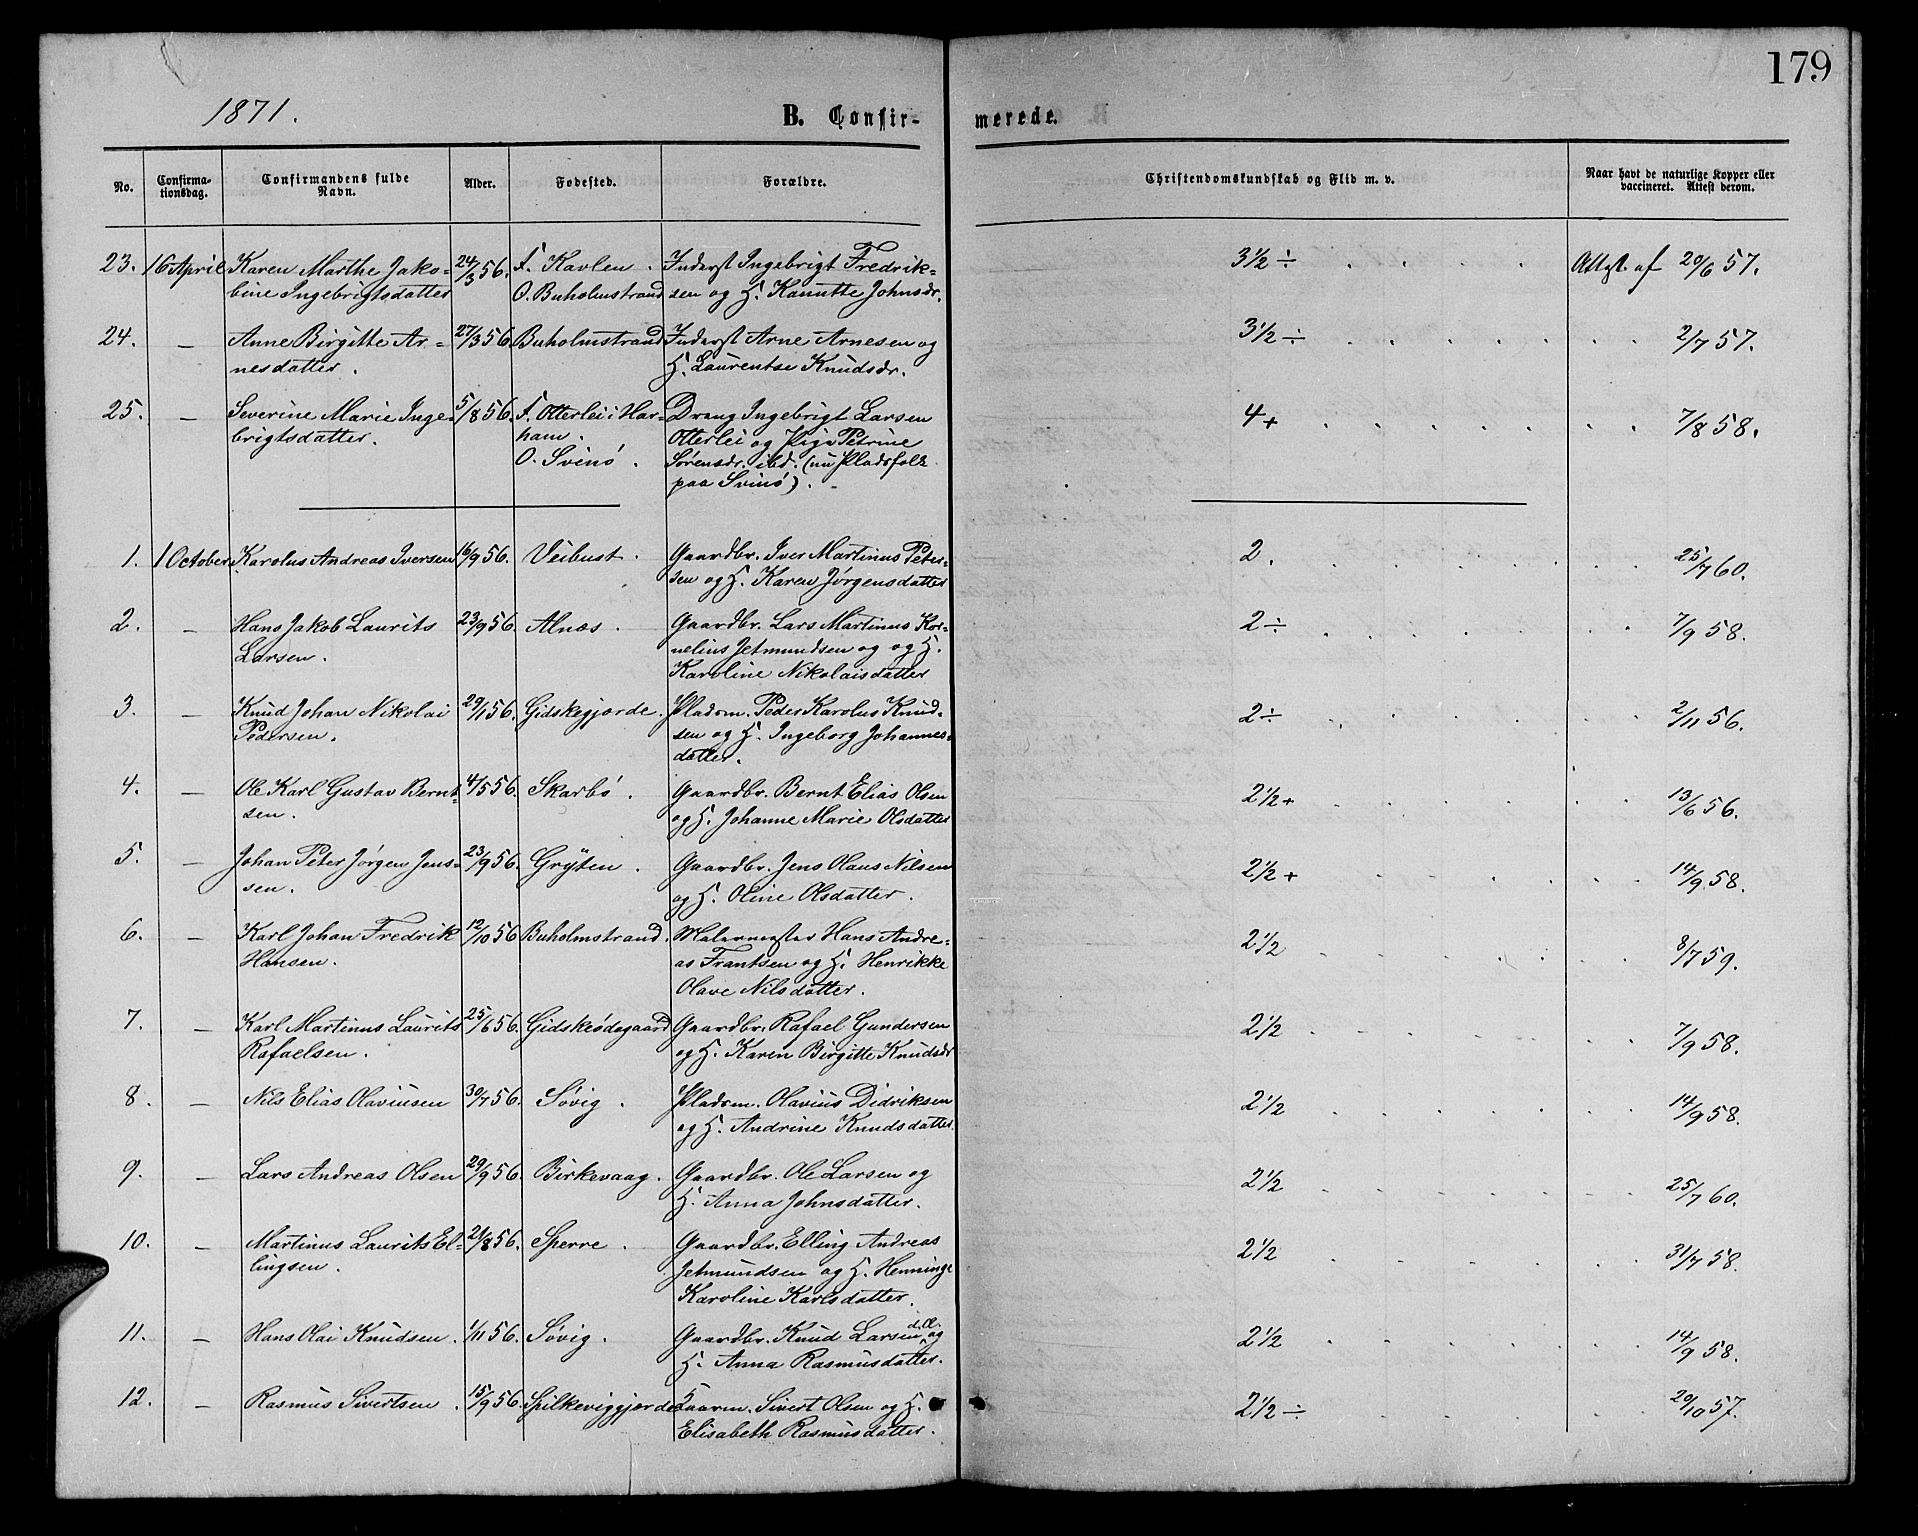 179
1871.
B. Confir- merede.
No. Confirma-tionsdag. Confirmandens fulde Navn. Alder. Fødested. Forældre. Christendomskundskab og Flid m. v. Naar havt de naturlige Kopper eller vaccineret. Attest derom.
23. 16 April Karen Marthe Jako- 24/3 56. F. Kavlen. Inderst Ingebrigt Fredrik- 3½ ÷ Attest af 20/6 57.
bine Ingebrigtsdatter O. Buholmstrand sen og H. Kanutte Johnsdr.
24. — Anne Birgitte Ar- 27/3 56. Buholmstrand Inderst Arne Arnesen og 3½ ÷ 2/7 57.
nesdatter. H. Laurentse Knudsdr.
25. — Severine Marie Inge- 5/8 56. F. Otterlei i Har- Dreng Ingebrigt Larsen 4+ 7/8 58.
brigtsdatter. ham. Otterlei og Pige Petrine
O. Svinö. Sørensdr. ibd. (nu Pladsfolk
paa Svinö).
1. 1 October Karolus Andreas Iversen 16/9 56. Veibust. Gaardbr. Iver Martinus Peter- 2. 25/7 60.
sen og H. Karen Jørgensdatter
2. — Hans Jakob Laurits 23/9 56. Alnæs. Gaardbr. Lars Martinus Kor- 2 ÷ 7/9 58.
Larsen. nelius Jetmundsen og og H.
Karoline Nikolaisdatter
3. — Knud Johan Nikolai 29/1 56. Gidskegjerde. Pladsm. Peder Karolus Knud- 2 ÷ 2/11 56.
Pedersen. sen og H. Ingeborg Johannes-
datter.
4. — Ole Karl Gustav Bernt- 4/5 56. Skarbö. Gaardbr. Bernt Elias Olsen 2½ + 13/6 56.
sen. og H. Johanne Marie Olsdatter
5. — Johan Peter Jørgen Jens- 23/9 56. Grÿten. Gaardbr. Jens Olaus Nilsen 2½ + 14/9 58.
sen. og H. Oline Olsdatter.
6. — Karl Johan Fredrik 12/10 56 Buholmstrand. Malermester Hans Andre- 2½ 8/7 59.
Hansen. as Frantsen og H. Henrikke
Olave Nilsdatter.
7. — Karl Martinus Laurits 25/6 56. Gidskeödegaard Gaardbr. Rafael Gundersen 2½ 7/9 58.
Rafaelsen. og H. Karen Birgitte Knudsdr
8. — Nils Elias Olaviusen 30/7 56. Sövig. Pladsm. Olavius Didriksen 2½ 14/9 58.
og H. Andrine Knudsdatter.
9. — Lars Andreas Olsen 29/9 56. Birkevaag. Gaardbr. Ole Larsen og 2½ 25/7 60.
H. Anna Johnsdatter.
10. — Martinus Laurits El- 21/8 56. Sperre. Gaardbr. Elling Andreas 2½ 31/7 58.
lingsen. Jetmundsen og H. Henninge
Karoline Karlsdatter.
11. — Hans Olai Knudsen. 1/11 56. Sövig. Gaardbr. Knud Larsen d.æ. og 2½ 14/9 58.
H. Anna Rasmusdatter.
12. — Rasmus Sivertsen. 15/9 56. Spilkeviggjerde Sivert Olsen og H. 2½ ÷ 20/10 57.
Elisabeth Rasmusdatter.